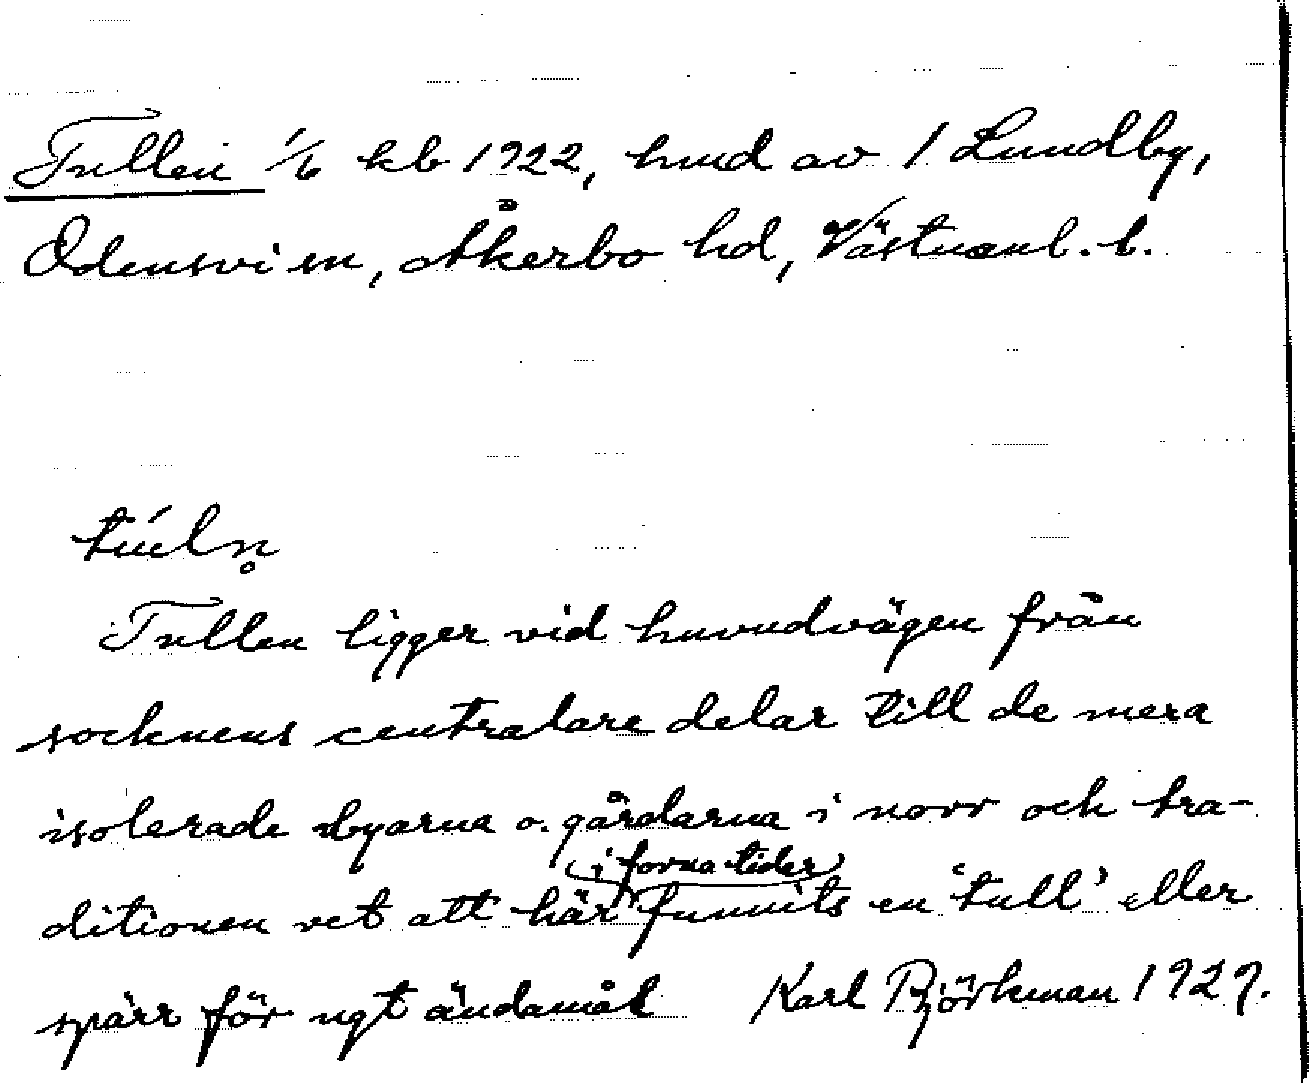 Tullen 1/6 kb 1922, hmd av 1 Lundby,
Odensvi sn, Åkerbo hd, Västmanl. l.
túln̥
Tullen ligger vid huvudvägen från
socknens centralare delar till de mera
isolerade byarna o. gårdarna i norr och tra-
ditionen vet att här i forna tider funnits en 'tull' eller
spärr för ngt ändamål Karl Björkman 1929.